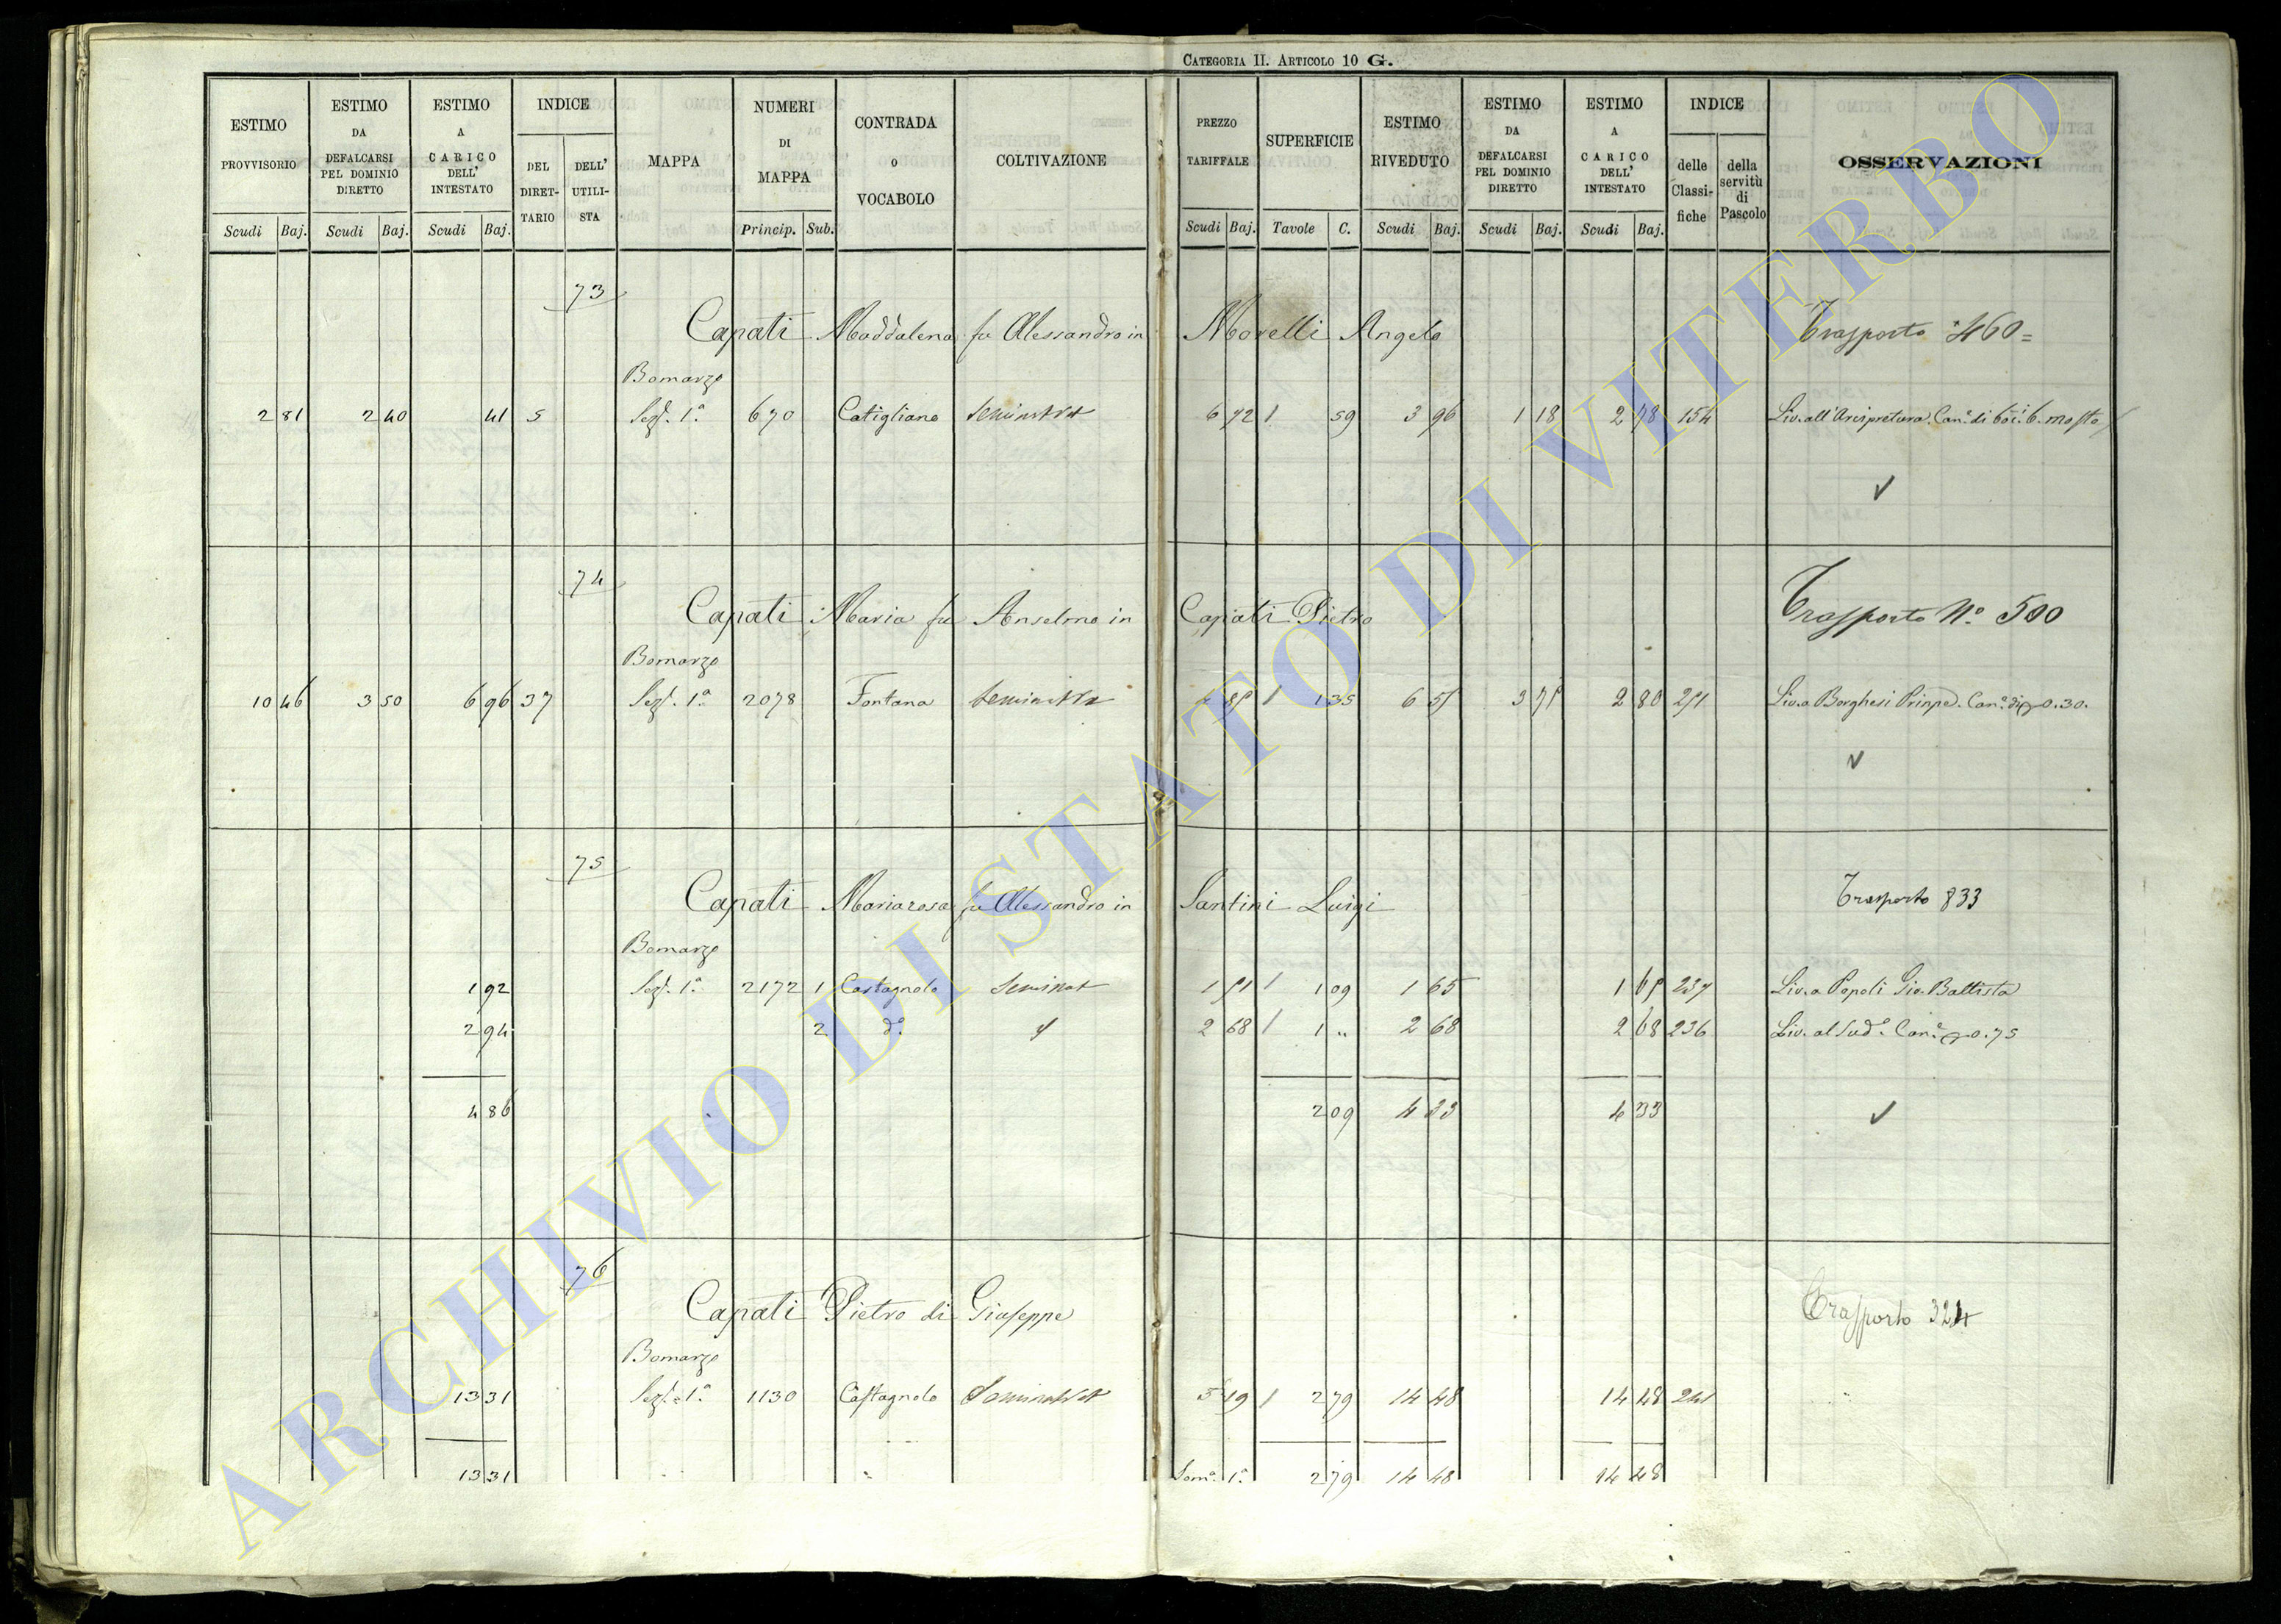 CATEGORIA II. ARTICOLO 10 G.
ESTIMO PROVVISORIO Scudi Baj.
ESTIMO DA DEFALCARSI PEL DOMINIO DIRETTO Scudi Baj.
ESTIMO A CARICO DELL' INTESTATO Scudi Baj.
INDICE DEL DIRETTARIO DELL' UTILISTA
MAPPA
NUMERI DI MAPPA Princip. Sub.
CONTRADA O VOCABOLO
COLTIVAZIONE
PREZZO TARIFFALE Scudi Baj.
SUPERFICIE Tavole C.
ESTIMO RIVEDUTO Scudi Baj.
ESTIMO DA DEFALCARSI PEL DOMINIO DIRETTO Scudi Baj.
ESTIMO A CARICO DELL' INTESTATO Scudi Baj.
INDICE delle Classifiche della servitù di Pascolo
OSSERVAZIONI
73
Capati Maddalena fu Alessandro in Morelli Angelo Trasporto 460=
Bomarzo
2 81 2 40 41 5 Sez. 1a 670 Catigliano seminat 6 72 1 59 3 96 1 18 2 78 154 Liv. all'Arcipretura. Can. di boc. 6. mosto
74
Capati Maria fu Anselmo in Capati Pietro Trasporto No. 500
Bomarzo
10 46 3 50 6 96 37 Sez. 1a 2078 Fontana 1 1 35 6 3 2 80 Liv. a Borghesi Prinpe. Can. di 0.30.
75
Capati Mariarosa fu Alessandro in Santini Luigi Trasporto 833
Bomarzo
1 92 Sez. 1a 2172 1 Castagnolo seminat 1 1 1 09 1 65 1 237 Liv. a Papali Gio. Battista
2 94 2 do. 2 68 1 1 " 2 68 2 68 236 Liv. al Sudo. Can. 0.75
4 86 2 09 4 33 4 33
76
Capati Pietro di Giuseppe Trasporto 324
Bomarzo
13 31 Sez. 1a 1130 Castagnolo Seminat 5 19 1 2 79 14 48 14 48 241
13 31 Som. 1a 2 79 14 48 14 48
ARCHIVIO DI STATO DI VITERBO